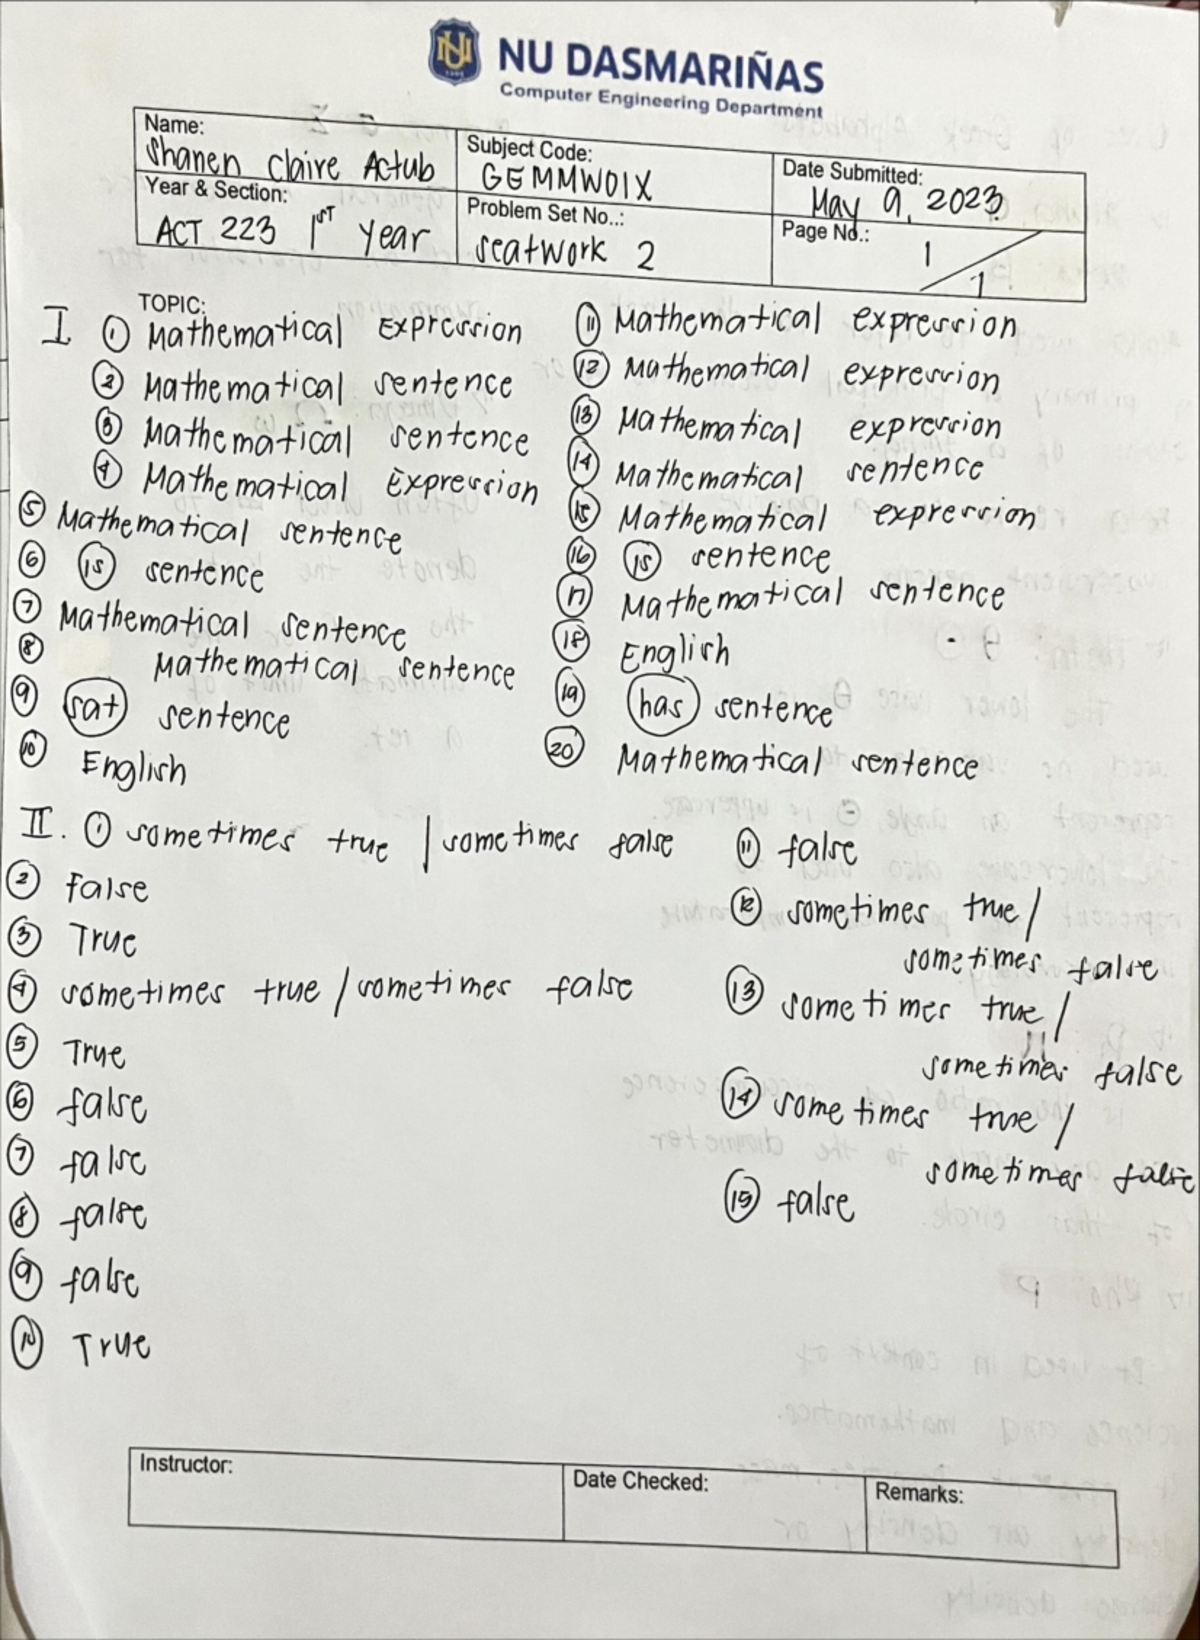 NU DASMARIÑAS
Computer Engineering Department
Name:
Shanen Claire Actub
Subject Code:
GEMMW01X
Date Submitted:
May 9, 2023
Year & Section:
ACT 223 1ST Year
Problem Set No..:
seatwork 2
Page No.:
1/1
TOPIC:
I
1 Mathematical Expression
2 Mathematical sentence
3 Mathematical sentence
4 Mathematical Expression
5 Mathematical sentence
6 is sentence
7 Mathematical sentence
8 Mathematical sentence
9 sat sentence
10 English
11 Mathematical expression
12 Mathematical expression
13 Mathematical expression
14 Mathematical sentence
15 Mathematical expression
16 is sentence
17 Mathematical sentence
18 English
19 has sentence
20 Mathematical sentence
II. 1 sometimes true / sometimes false
2 false
3 True
4 sometimes true / sometimes false
5 True
6 false
7 false
8 false
9 false
10 True
11 false
12 sometimes true /
sometimes false
13 sometimes true /
sometimes false
14 sometimes true /
sometimes false
15 false
Instructor:
Date Checked:
Remarks: